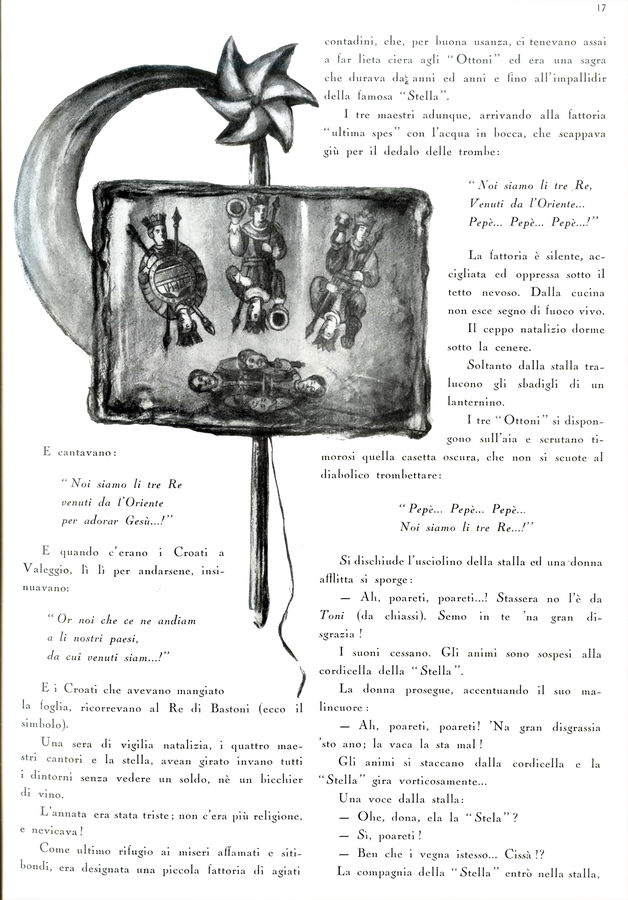 17
E cantavano:
" Noi siamo li tre Re
venuti da l'Oriente
per adorar Gesù...! "
E quando c'erano i Croati a
Valeggio, lì lì per andarsene, insi-
nuavano:
" Or noi che ce ne andiam
a li nostri paesi,
da cui venuti siam...! "
E i Croati che avevano mangiato
la foglia, ricorrevano al Re di Bastoni (ecco il
simbolo).
Una sera di vigilia natalizia, i quattro mae-
stri cantori e la stella, avean girato invano tutti
i dintorni senza vedere un soldo, nè un bicchier
di vino.
L'annata era stata triste; non c'era più religione,
e nevicava!
Come ultimo rifugio ai miseri affamati e siti-
bondi, era designata una piccola fattoria di agiati
contadini, che, per buona usanza, ci tenevano assai
a far lieta ciera agli " Ottoni " ed era una sagra
che durava da anni ed anni e fino all'impallidir
della famosa " Stella ".
I tre maestri adunque, arrivando alla fattoria
" ultima spes " con l'acqua in bocca, che scappava
giù per il dedalo delle trombe:
" Noi siamo li tre Re,
Venuti da l'Oriente...
Pepè... Pepè... Pepè...! "
La fattoria è silente, ac-
cigliata ed oppressa sotto il
tetto nevoso. Dalla cucina
non esce segno di fuoco vivo.
Il ceppo natalizio dorme
sotto la cenere.
Soltanto dalla stalla tra-
lucono gli sbadigli di un
lanternino.
I tre " Ottoni " si dispon-
gono sull'aia e scrutano ti-
morosi quella casetta oscura, che non si scuote al
diabolico trombettare:
" Pepè... Pepè... Pepè...
Noi siamo li tre Re...! "
Si dischiude l'usciolino della stalla ed una donna
afflitta si sporge:
— Ah, poareti, poareti...! Stassera no l'è da
Toni (da chiassi). Semo in te 'na gran di-
sgrazia !
I suoni cessano. Gli animi sono sospesi alla
cordicella della " Stella ".
La donna prosegue, accentuando il suo ma-
lincuore :
— Ah, poareti, poareti! 'Na gran disgrassia
'sto ano; la vaca la sta mal !
Gli animi si staccano dalla cordicella e la
" Stella " gira vorticosamente...
Una voce dalla stalla:
— Ohe, dona, ela la " Stela " ?
— Sì, poareti !
— Ben che i vegna istesso... Cissà !?
La compagnia della " Stella " entrò nella stalla,